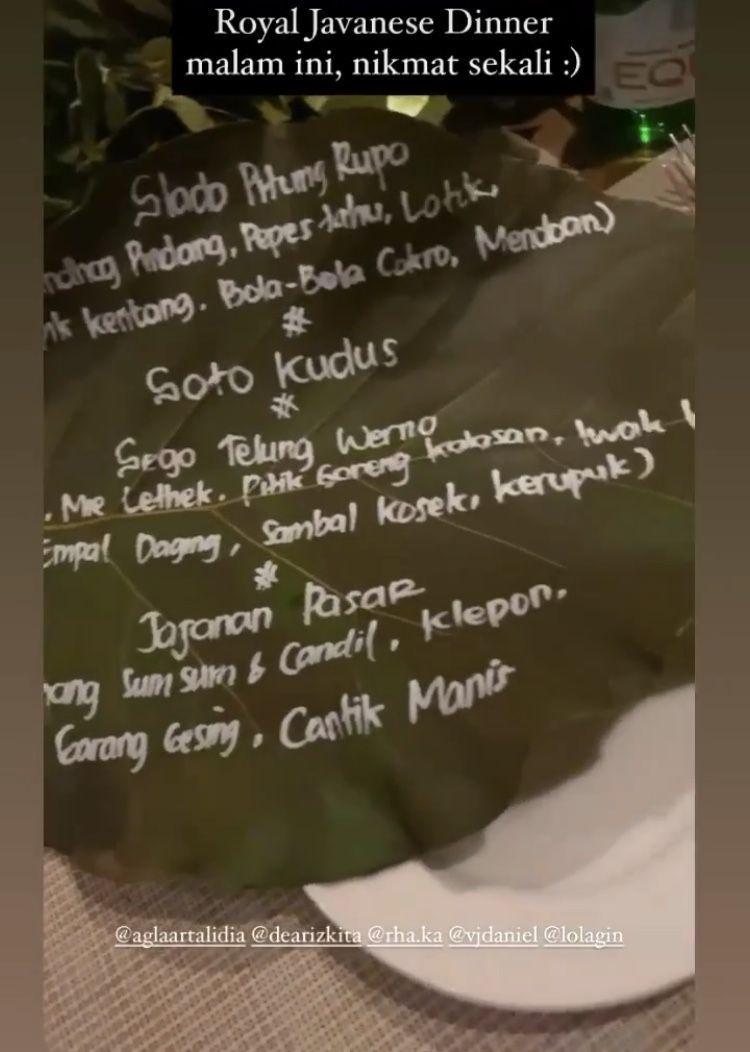 Royal Javanese Dinner
malam ini, nikmat sekali :)
EQ
Slado Pitung Rupo
Pindang, Pepes tahu, Lotik,
kentang. Bola-Bola Cokro, Mendoan)
#
Soto Kudus
#
Sego Telung Werno
. Mie Lethek. Pitik Goreng kalasan, Iwak
Empal Daging, Sambal Kosek, kerupuk)
#
Jajanan Pasar
Sum Sum & Candil, Klepon,
Garang Gesing, Cantik Manis
@aglaartalidia @dearizkita @rha.ka @vjdaniel @lolagin